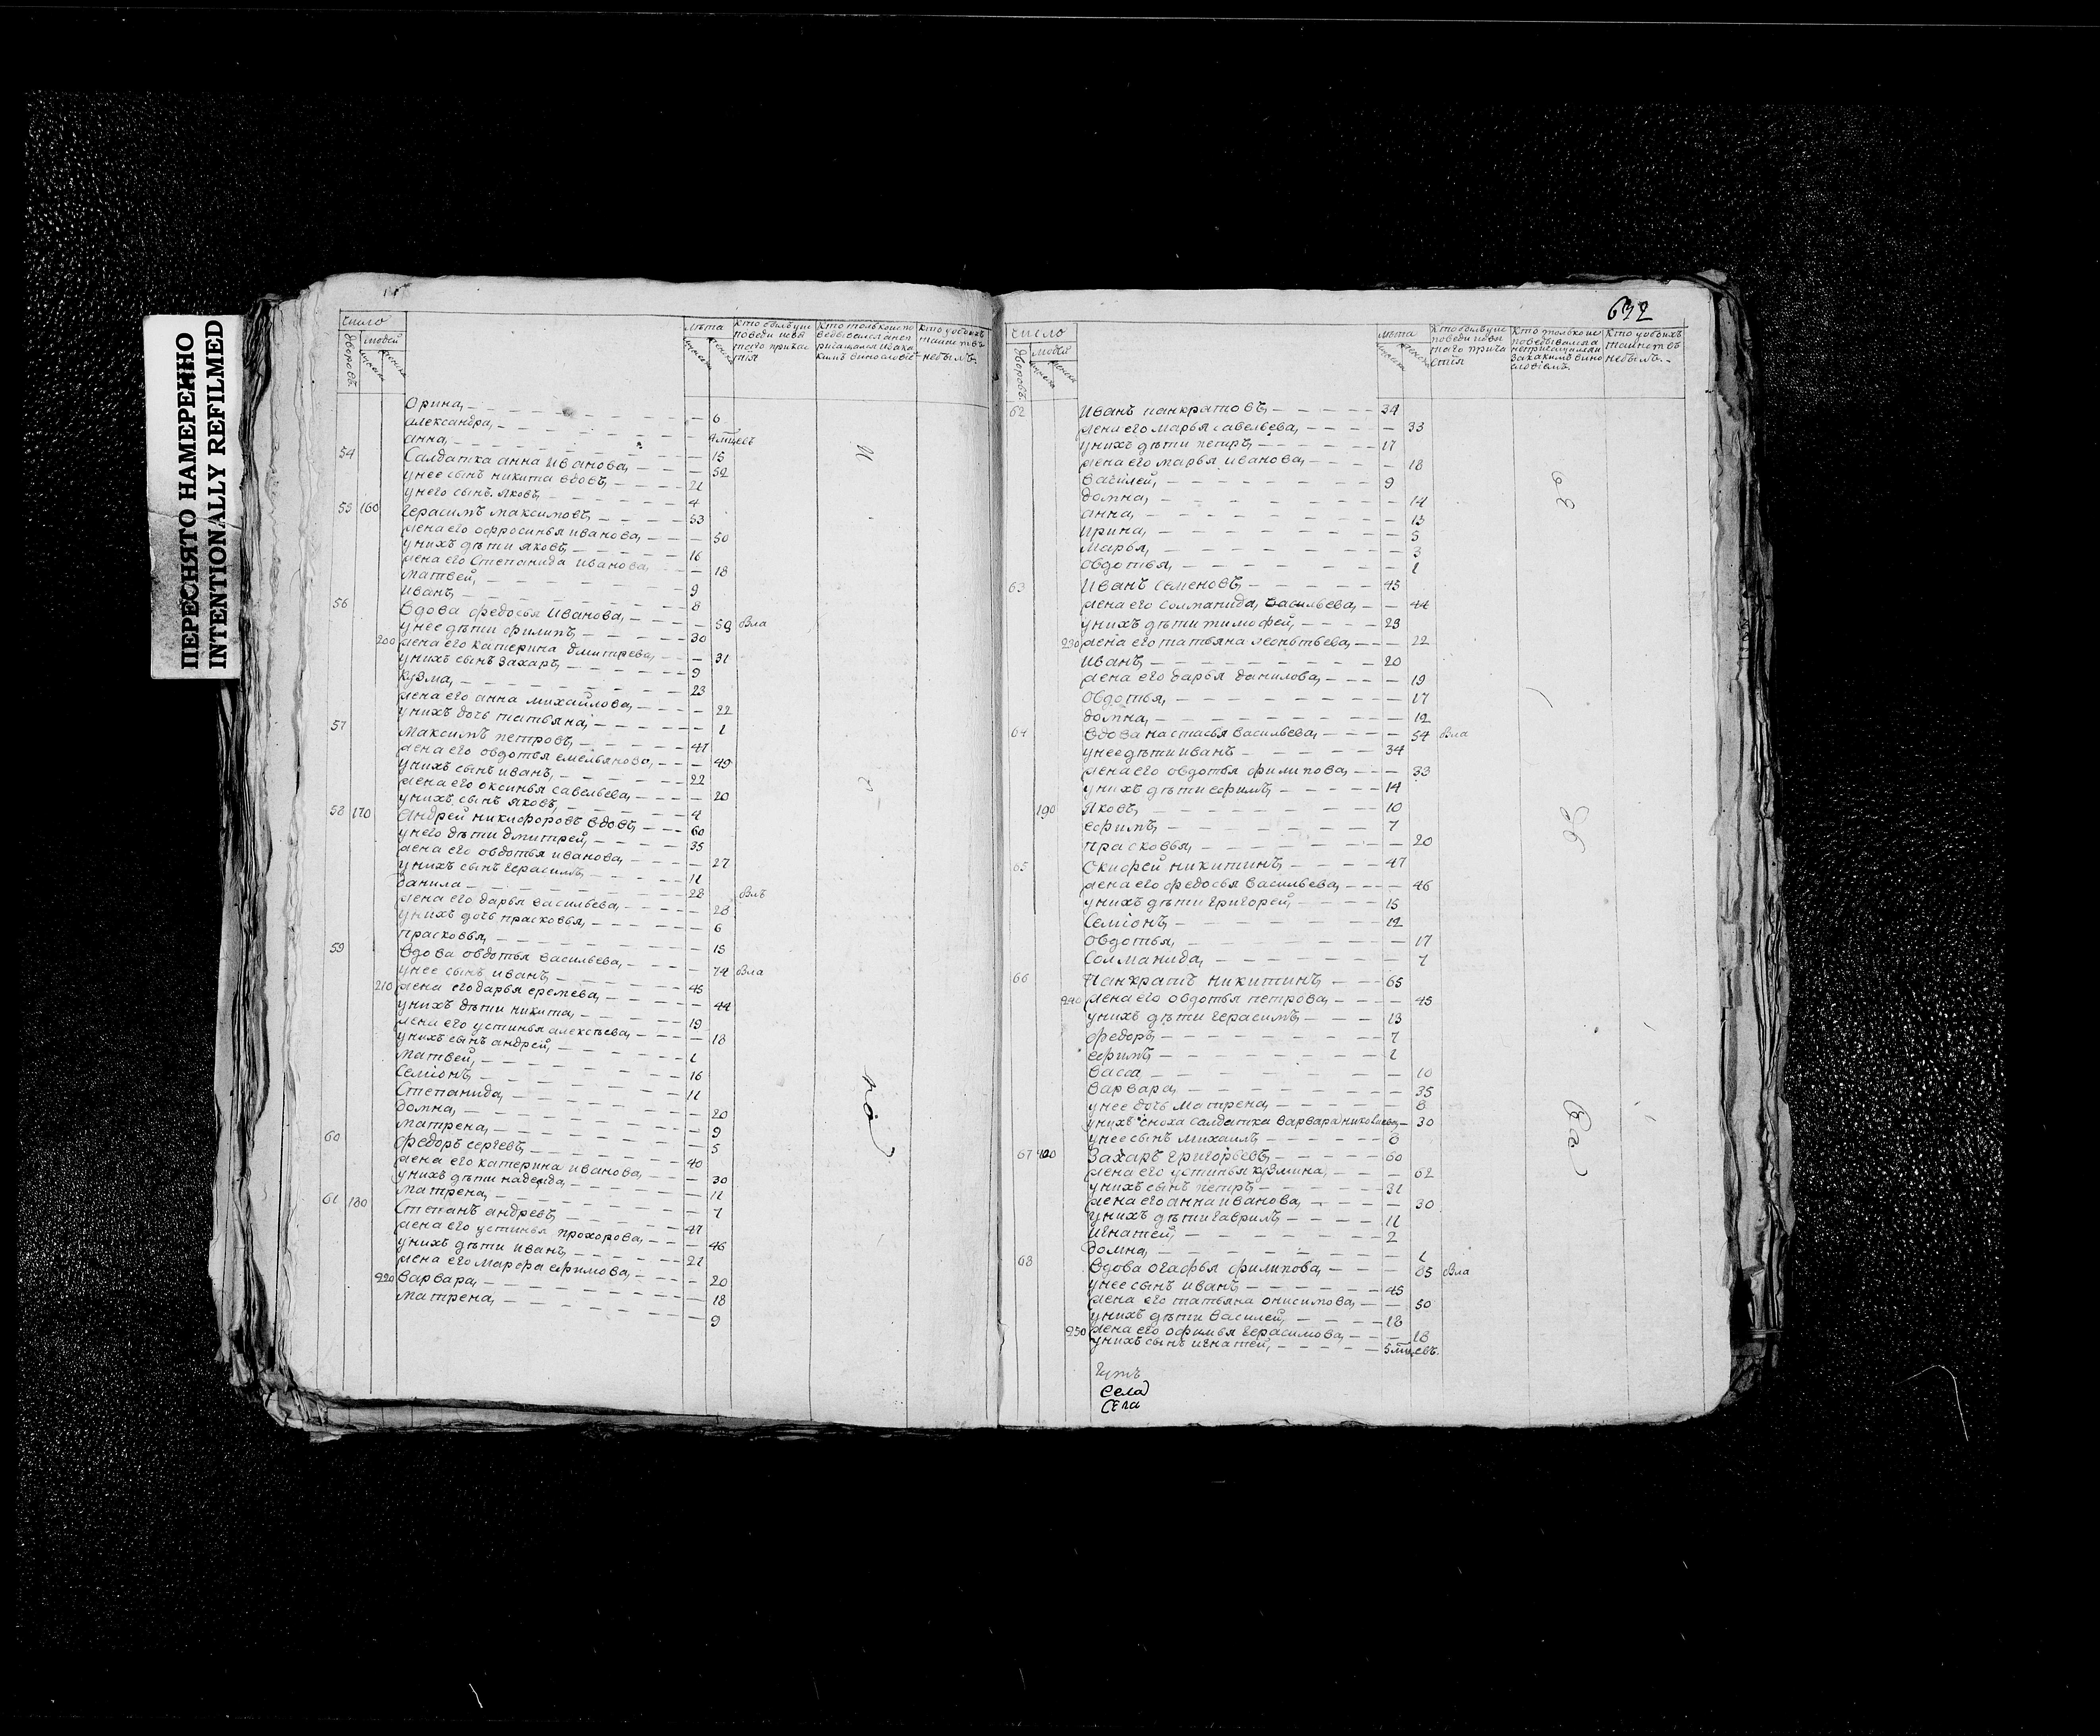 ПЕРЕСНЯТО НАМЕРЕННО
INTENTIONALLY REFILMED
число
людей
дворовъ
лѣта
Орина, 6
александра, 4 мцевъ
анна, 15
54 Салдатка анна Иванова, 52
унее сынъ никита вдовъ, 21
унего сынъ яковъ, 4
55 160 Герасимъ максимовъ, 53
жена его офросинья иванова, 50
унихъ дѣти яковъ, 16
жена его Степанида иванова, 18
матвей, 9
иванъ, 8
56 Вдова федосья Иванова, 59 бла
унее дѣти филипъ, 30
200 жена его катерина дмитрева, 31
унихъ сынъ захаръ, 9
кузма, 23
жена его анна михайлова, 22
унихъ дочь татьяна, 1
57 максимъ петровъ, 47
жена его овдотья емельянова, 49
унихъ сынъ иванъ, 22
жена его оксинья савельева, 20
унихъ сынъ яковъ, 4
58 170 андрей никифоровъ вдовъ, 60
унего дѣти дмитрей, 35
жена его овдотья иванова, 27
унихъ сынъ герасимъ, 11
данила 28 былъ
жена его дарья васильева, 28
унихъ дочь прасковья, 6
прасковья, 15
59 Вдова овдотья васильева, 74 бла
унее сынъ иванъ, 45
210 жена его дарья еремева, 44
унихъ дѣти никита, 19
жена его устинья алексѣева, 18
унихъ сынъ андрей, 1
матвей, 16
Семионъ, 11
Степанида, 20
домна, 9
матрена, 5
60 федоръ сергевъ, 40
жена его катерина иванова, 30
унихъ дѣти надежда, 11
матрена, 7
61 180 Степанъ андревъ, 47
жена его устинья прохорова, 46
унихъ дѣти иванъ, 21
жена его марфа ефимова, 20
220 варвара, 18
матрена, 9
632
число
людей
дворовъ
лѣта
62 Иванъ панкратовъ, 34
жена его марья савельева, 33
унихъ дѣти петръ, 17
жена его марья иванова, 18
василей, 9
домна, 14
анна, 13
ирина, 5
марья, 3
овдотья, 1
63 Иванъ Семеновъ, 45
жена его солманида, васильева, 44
унихъ дѣти тимофей, 23
230 жена его татьяна леонтьева, 22
иванъ 20
жена его дарья данилова, 19
овдотья, 17
домна, 12
64 Вдова настасья васильева, 54 бла
унее дѣти иванъ 34
жена его овдотья филипова, 33
унихъ дѣти ефимъ, 14
190 яковъ, 10
ефимъ, 7
прасковья, 20
65 Скифей никитинъ, 47
жена его федосья васильева, 46
унихъ дѣти григорей, 15
Семионъ, 12
овдотья, 17
Солманида, 7
66 Панкратъ никитинъ, 65
240 жена его овдотья петрова, 45
унихъ дѣти герасимъ, 13
федоръ, 7
ефимъ, 1
васса 10
варвара, 35
унее дочь матрена, 8
унихъ сноха салдатка варвара николаева, 30
унее сынъ михаилъ, 6
67 Захаръ григорьевъ, 60
жена его устинья кузмина, 62
унихъ сынъ петръ, 31
жена его анна иванова, 30
унихъ дѣти гаврилъ, 11
игнатей, 2
домна, 1
68 Вдова огафья филипова, 85 бла
унее сынъ иванъ, 45
жена его татьяна онисимова, 50
унихъ дѣти василей, 18
250 жена его офимья герасимова, 18
унихъ сынъ игнатей, 5 мцевъ.
села
села